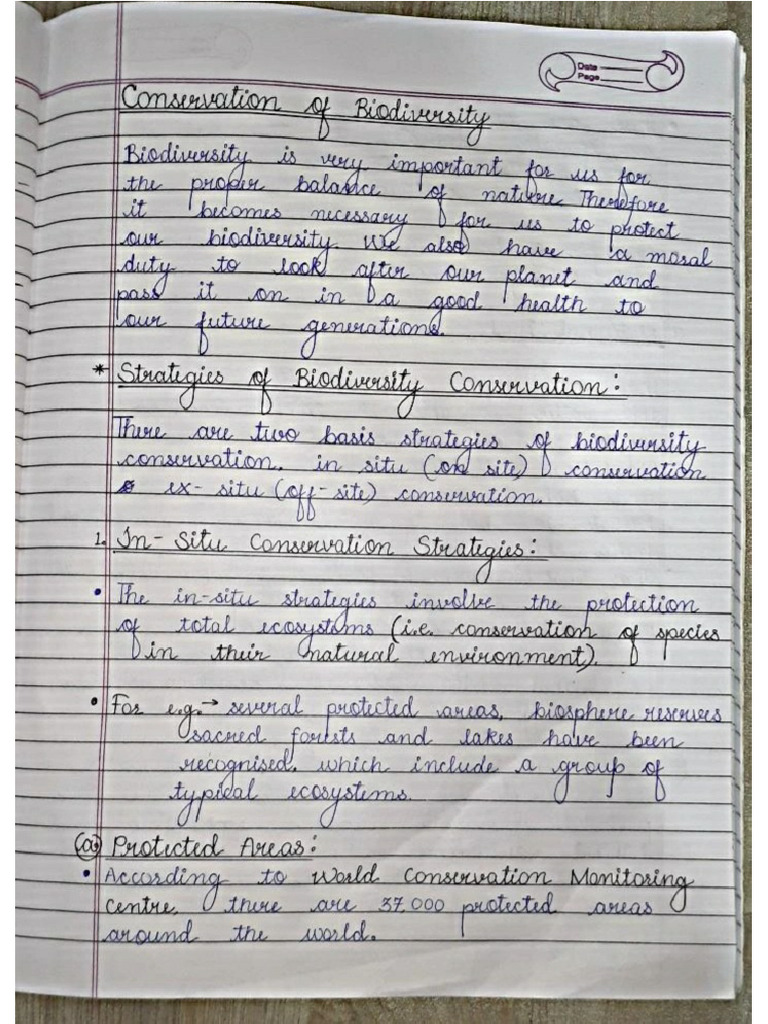 Date
Page
Conservation of Biodiversity
Biodiversity is very important for us for
the proper balance of nature. Therefore
it becomes necessary for us to protect
our biodiversity. We also have a moral
duty to look after our planet and
pass it on in a good health to
our future generations.
* Strategies of Biodiversity Conservation:
There are two basis strategies of biodiversity
conservation. in situ (on site) conservation
& ex-situ (off-site) conservation.
1. In-Situ Conservation Strategies:
• The in-situ strategies involve the protection
of total ecosystems (i.e. conservation of species
in their natural environment).
• For e.g. → several protected areas, biosphere reserves
sacred forests and lakes have been
recognised. which include a group of
typical ecosystems.
(a) Protected Areas:
• According to World Conservation Monitoring
centre, there are 37,000 protected areas
around the world.